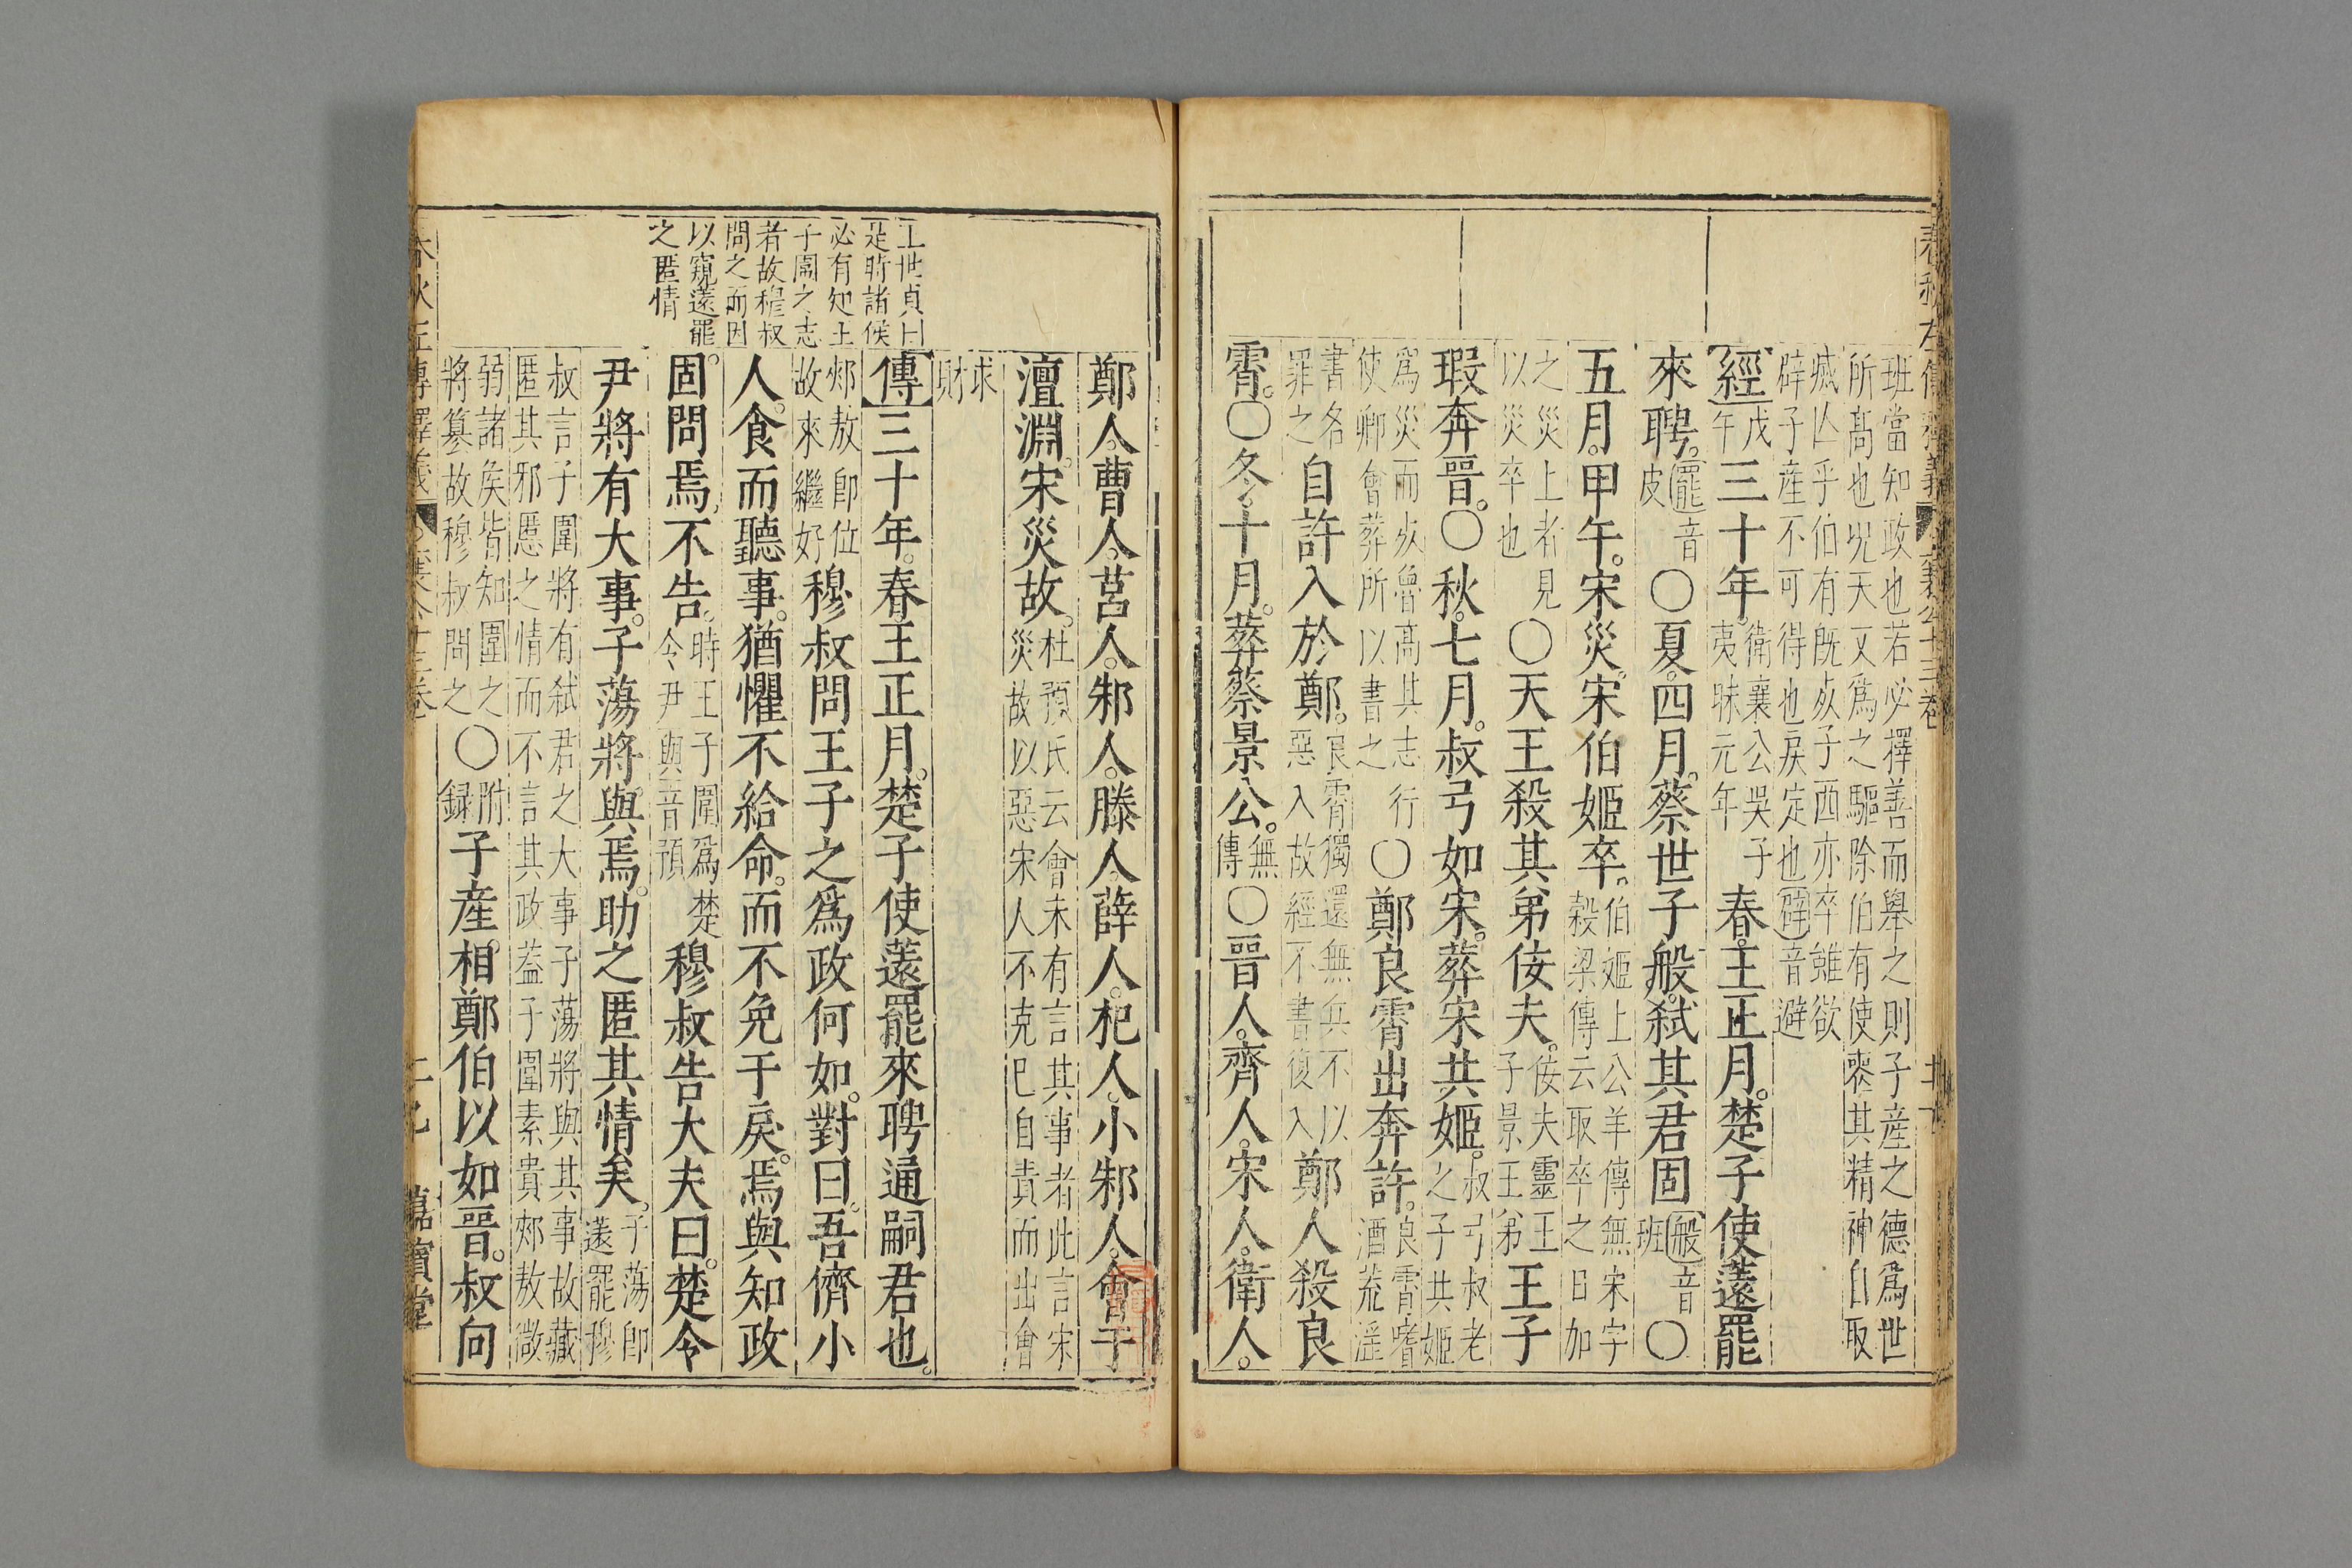 班當知政也若必擇善而舉之則子產之德爲世所髙也况天又爲之驅除伯有使喪其精神自取
㓕亡乎伯有既死子西亦卒雖欲辟子產不可得也戾定也辟音避
經戊午三十年。衛襄公吳子夷昧元年春。王正月。楚子使薳罷
來聘。罷音皮〇夏。四月。蔡世子般。弑其君固般音班〇
五月。甲午。宋災。宋伯姬卒。伯姬上公羊傳無宋字穀梁傳云取卒之日加
之災上者見以災卒也〇天王殺其弟佞夫。佞夫靈王子景王弟王子
瑕奔晉。〇秋。七月。叔弓如宋。葬宋共姬。叔弓叔老之子共姬
爲災而死魯髙其志行使卿會葬所以書之〇鄭良霄出奔許。良霄嗜酒荒淫
書名罪之自許入於鄭。良霄獨還無兵不以惡入故經不書復入鄭人殺良
霄。〇冬。十月。葬蔡景公。無傳〇晉人。齊人。宋人。衛人。
鄭人。曹人。莒人。邾人。滕人。薛人。杞人。小邾人。會于
澶淵。宋災故。杜預氏云會未有言其事者此言宋災故以惡宋人不克已自責而出會
求財
傳三十年。春王正月。楚子使薳罷來聘。通嗣君也。
郟敖卽位故來繼好穆叔問王子之爲政何如。對曰。吾儕小
人。食而聽事。猶懼不給命。而不免于戾。焉與知政
固問焉。不告。時王子圍爲楚令尹與音預穆叔告大夫曰。楚令
尹將有大事。子蕩將。與焉。助之匿其情矣。子蕩卽薳罷穆
叔言子圍將有弑君之大事子蕩將與其事故藏匿其邪慝之情而不言其政蓋子圍素貴郟敖微
弱諸矦皆知圍之將簒故穆叔問之〇附録子產。相鄭伯以如晉。叔向
王世貞曰
是時諸侯
必有知王
子圍之志
者故穆叔
問之而因
以窺薳罷
之匿情